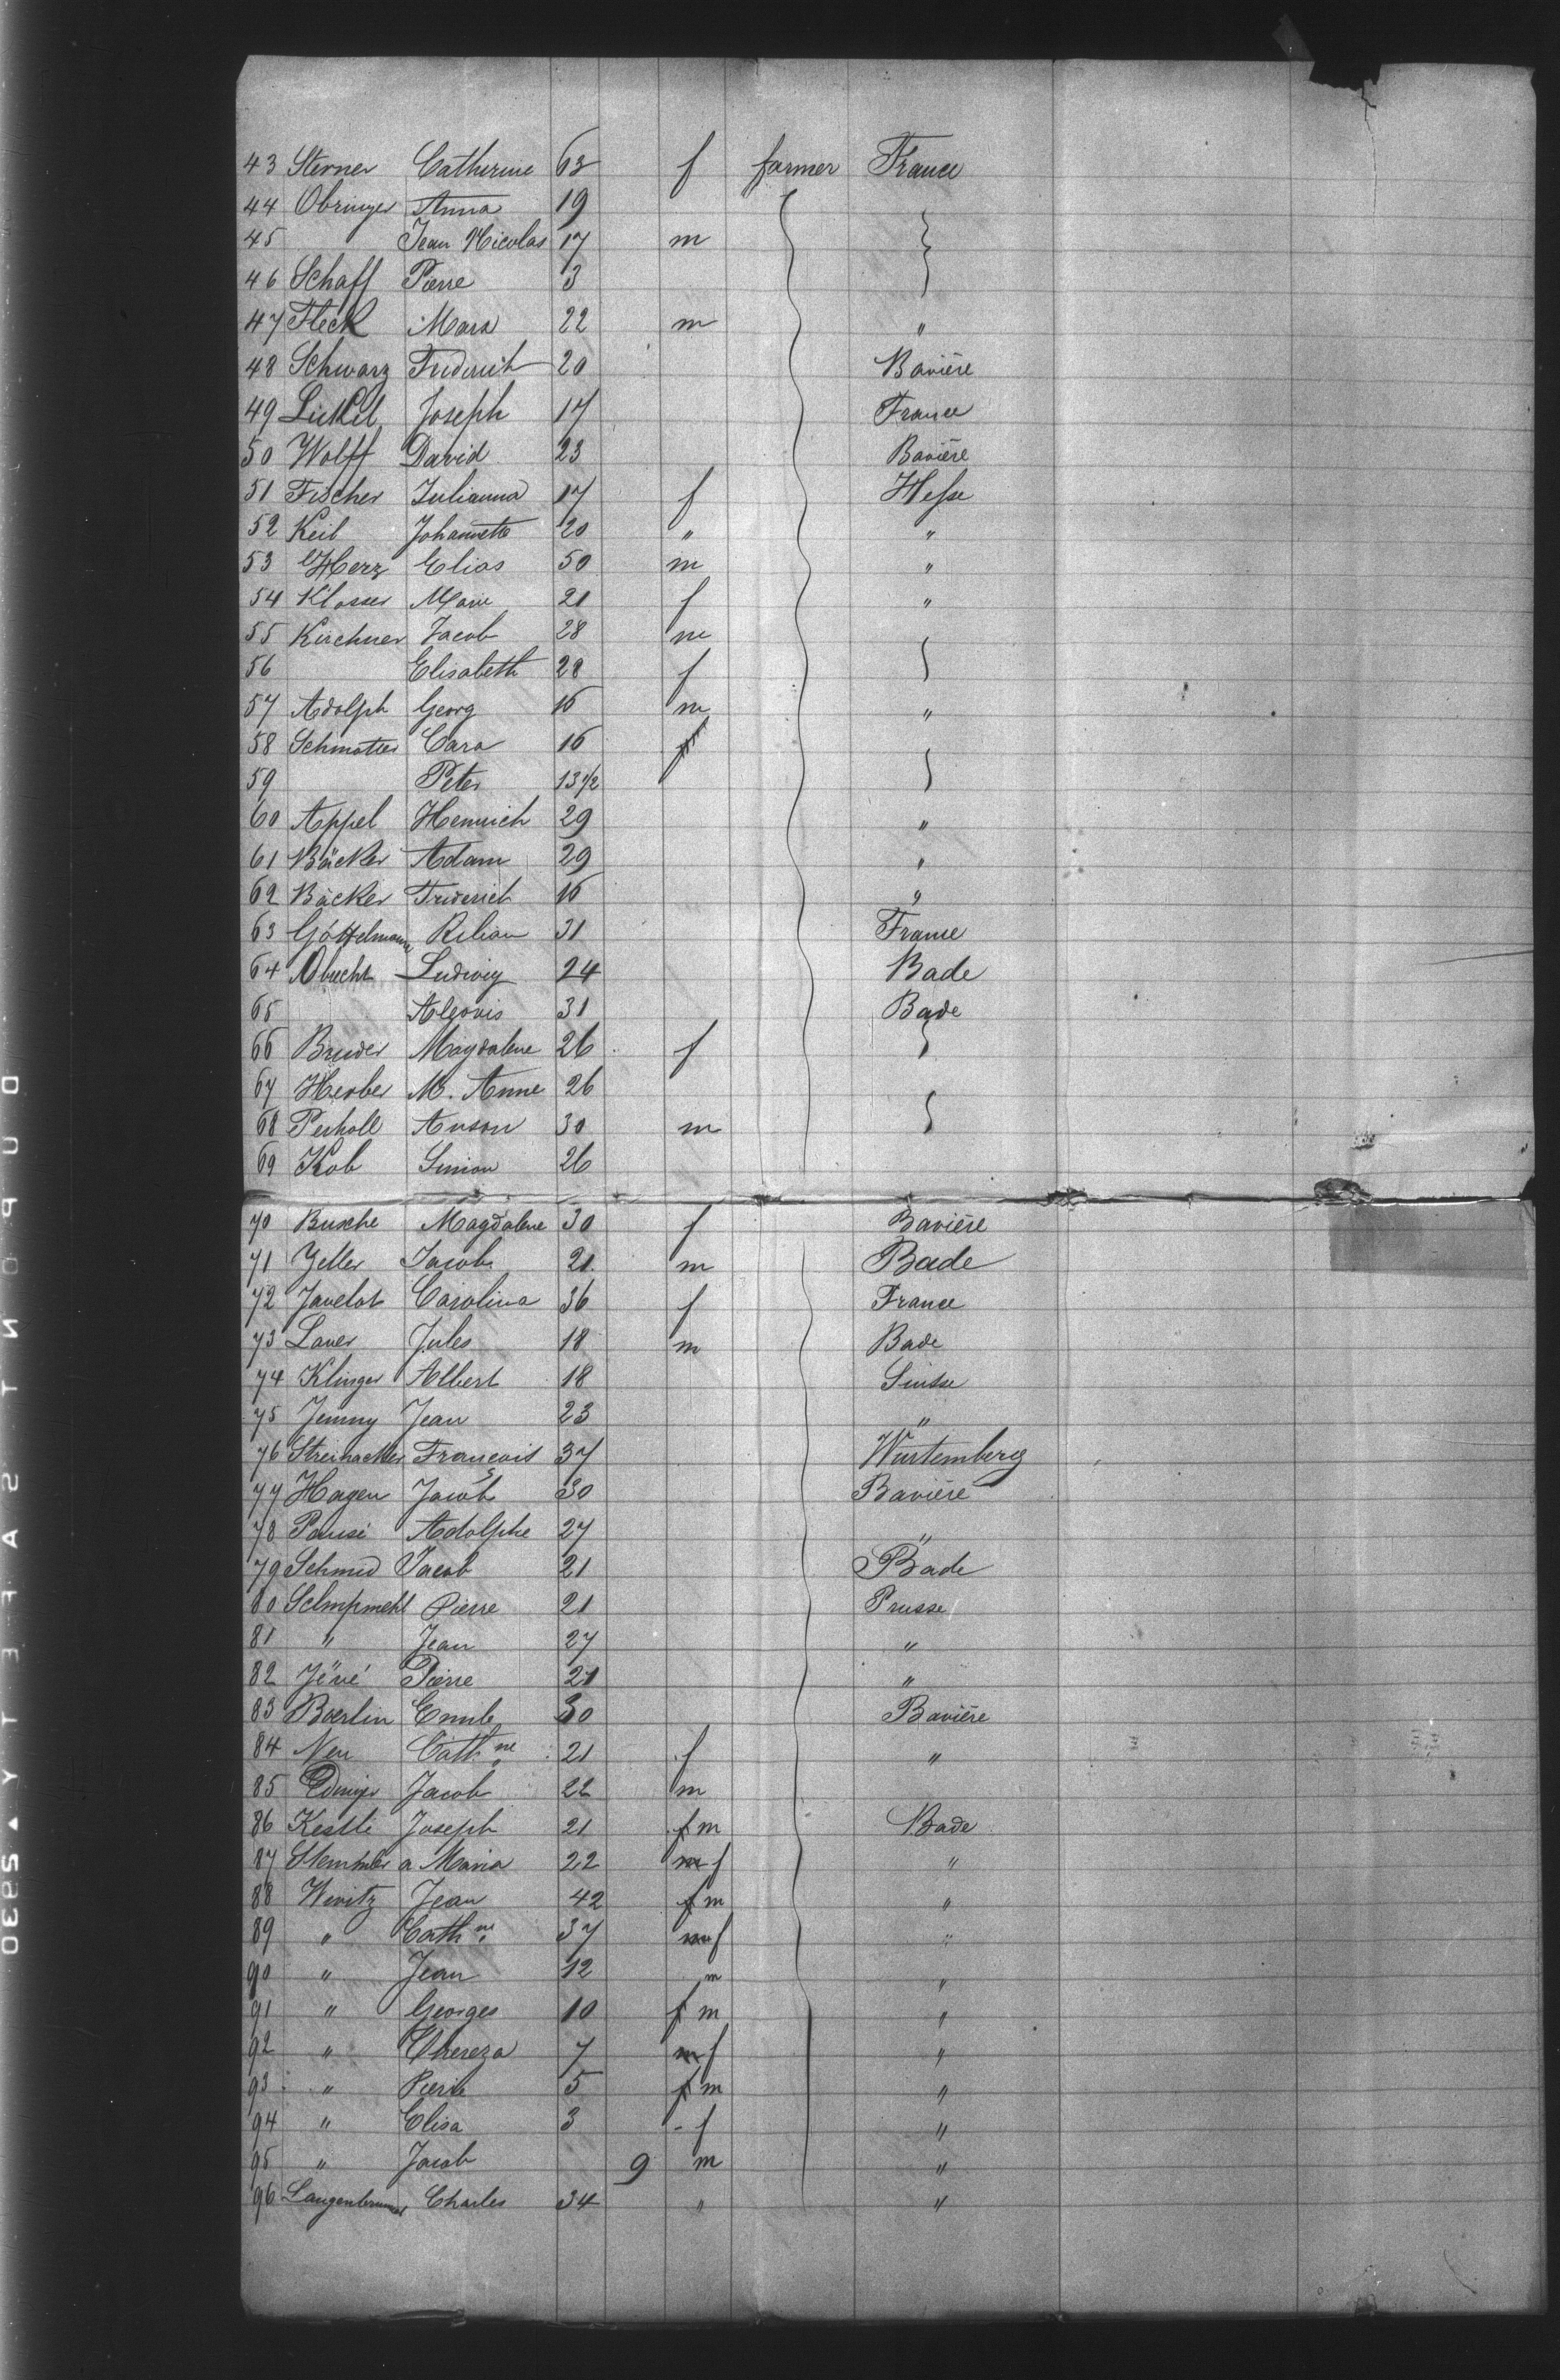 43 Sterner Catherine 63 f farmer France
44 Obringer Anna 19
45 Jean Nicolas 17 m
46 Schaff Pierre 3
47 Fleck Marx 22 m "
48 Schwarz Friderich 20 Bavière
49 Lickel Joseph 17 France
50 Wolff David 23 Bavière
51 Fischer Julianna 17 f Hesse
52 Keil Johannette 20 " "
53 Herz Elias 50 m "
54 Klasser Marie 21 f "
55 Kirchner Jacob 28 m
56 Elisabeth 28 f
57 Adolph Georg 16 m "
58 Schmatter Cara 16 f
59 Peter 13 1/2
60 Appel Henrich 29 "
61 Bäcker Adam 29 "
62 Bäcker Friderich 16 "
63 Göttelmann Kilian 31 France
64 Ludwig 24 Bade
65 Aleovis 31 Bade
66 Bruder Magdalene 26 f
67 Herber M. Anne 26
68 Anson 30 m
69 Kob Simon 26
70 Magdalene 30 f Bavière
71 Zeller Jacob 21 m Bade
72 Javelot Carolina 36 f France
73 Laver Jules 18 m Bade
74 Klinger Albert 18 Suisse
75 Jenny Jean 23 "
76 Streinacker François 37 Wurtemberg
77 Hagen Jacob 30 Bavière
78 Adolphe 27 "
79 Schmid Jacob 21 Bade
80 Pierre 21 Prusse
81 " Jean 27 "
82 Pierre 21 "
83 Baerlin Emile 30 Bavière
84 Neu Cathne 21 f "
85 Jacob 22 m
86 Kestli Joseph 21 f m Bade
87 Stemmler a Maria 22 m f "
88 Wivitz Jean 42 f m "
89 " Cathne 37 m f "
90 " Jean 12 m "
91 " Georges 10 f m "
92 " Thereza 7 m f "
93 " Pierre 5 f m "
94 " Elisa 3 - f "
95 " Jacob 9 m "
96 Langenbrunner Charles 34 " "
DUPONT SAFETY ▲ S'AFE